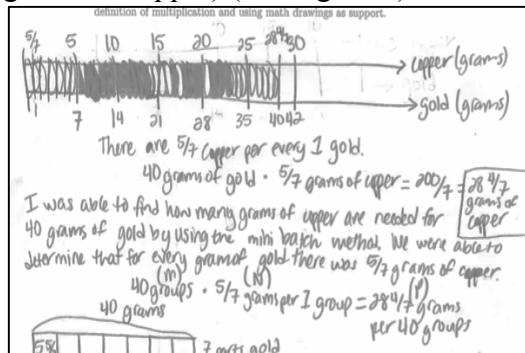 definition of multiplication and using math drawings as support.
5/7 5 10 15 20 25 28 4/7 30
copper (grams)
gold (grams)
1 7 14 21 28 35 40 42
There are 5/7 copper per every 1 gold.
40 grams of gold · 5/7 grams of copper = 200/7 = 28 4/7 grams of copper
I was able to find how many grams of copper are needed for
40 grams of gold by using the mini batch method. We were able to
determine that for every gram of gold there was 5/7 grams of copper.
(M) (N) (P)
40 groups · 5/7 grams per 1 group = 28 4/7 grams
per 40 groups
40 grams
7 parts gold